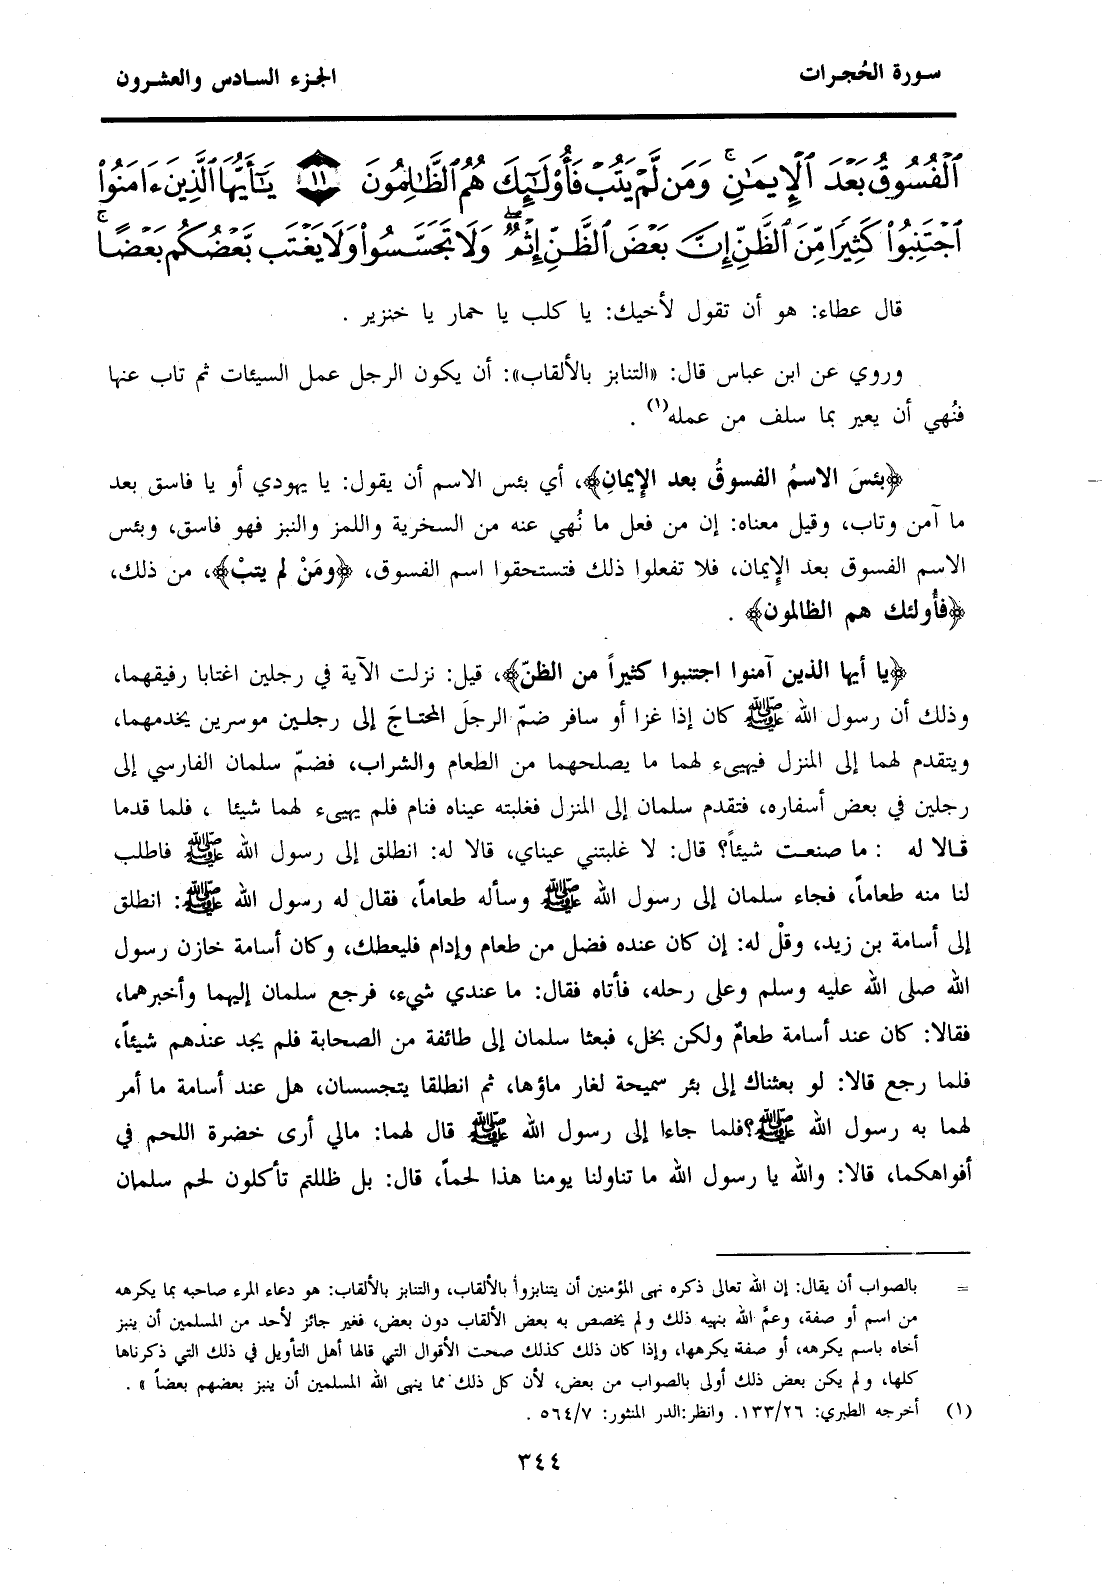 سورة الحُجرات
الجزء السادس والعشرون
ٱلْفُسُوقُ بَعْدَ ٱلْإِيمَٰنِ ۚ وَمَن لَّمْ يَتُبْ فَأُو۟لَٰٓئِكَ هُمُ ٱلظَّٰلِمُونَ ١١ يَٰٓأَيُّهَا ٱلَّذِينَ ءَامَنُوا۟
ٱجْتَنِبُوا۟ كَثِيرًا مِّنَ ٱلظَّنِّ إِنَّ بَعْضَ ٱلظَّنِّ إِثْمٌ ۖ وَلَا تَجَسَّسُوا۟ وَلَا يَغْتَب بَّعْضُكُم بَعْضًا ۚ
قال عطاء: هو أن تقول لأخيك: يا كلب يا حمار يا خنزير .
وروي عن ابن عباس قال: «التنابز بالألقاب»: أن يكون الرجل عمل السيئات ثم تاب عنها
فنُهي أن يعير بما سلف من عمله(١) .
﴿بئسَ الاسمُ الفسوقُ بعد الإيمانِ﴾، أي بئس الاسم أن يقول: يا يهودي أو يا فاسق بعد
ما آمن وتاب، وقيل معناه: إن من فعل ما نُهي عنه من السخرية واللمز والنبز فهو فاسق، وبئس
الاسم الفسوق بعد الإيمان، فلا تفعلوا ذلك فتستحقوا اسم الفسوق، ﴿ومَنْ لم يتبْ﴾، من ذلك،
﴿فأُولئك هم الظالمون﴾ .
﴿يا أيها الذين آمنوا اجتنبوا كثيراً من الظنّ﴾، قيل: نزلت الآية في رجلين اغتابا رفيقهما،
وذلك أن رسول الله ﷺ كان إذا غزا أو سافر ضمّ الرجلَ المحتاجَ إلى رجلين موسرين يخدمهما،
ويتقدم لهما إلى المنزل فيهيىء لهما ما يصلحهما من الطعام والشراب، فضمّ سلمان الفارسي إلى
رجلين في بعض أسفاره، فتقدم سلمان إلى المنزل فغلبته عيناه فنام فلم يهيىء لهما شيئا ، فلما قدما
قالا له : ما صنعت شيئاً؟ قال: لا غلبتني عيناي، قالا له: انطلق إلى رسول الله ﷺ فاطلب
لنا منه طعاماً، فجاء سلمان إلى رسول الله ﷺ وسأله طعاماً، فقال له رسول الله ﷺ: انطلق
إلى أسامة بن زيد، وقلْ له: إن كان عنده فضل من طعام وإدام فليعطك، وكان أسامة خازن رسول
الله صلى الله عليه وسلم وعلى رحله، فأتاه فقال: ما عندي شيء، فرجع سلمان إليهما وأخبرهما،
فقالا: كان عند أسامة طعامٌ ولكن بخل، فبعثا سلمان إلى طائفة من الصحابة فلم يجد عندهم شيئاً،
فلما رجع قالا: لو بعثناك إلى بئر سميحة لغار ماؤها، ثم انطلقا يتجسسان، هل عند أسامة ما أمر
لهما به رسول الله ﷺ؟فلما جاءا إلى رسول الله ﷺ قال لهما: مالي أرى خضرة اللحم في
أفواهكما، قالا: والله يا رسول الله ما تناولنا يومنا هذا لحماً، قال: بل ظللتم تأكلون لحم سلمان
= بالصواب أن يقال: إن الله تعالى ذكره نهى المؤمنين أن يتنابزوا بالألقاب، والتنابز بالألقاب: هو دعاء المرء صاحبه بما يكرهه
من اسم أو صفة، وعمَّ الله بنهيه ذلك ولم يخصص به بعض الألقاب دون بعض، فغير جائز لأحد من المسلمين أن ينبز
أخاه باسم يكرهه، أو صفة يكرهها، وإذا كان ذلك كذلك صحت الأقوال التي قالها أهل التأويل في ذلك التي ذكرناها
كلها، ولم يكن بعض ذلك أولى بالصواب من بعض، لأن كل ذلك مما ينهى الله المسلمين أن ينبز بعضهم بعضاً » .
(١) أخرجه الطبري: ١٣٣/٢٦. وانظر:الدر المنثور: ٥٦٤/٧ .
٣٤٤